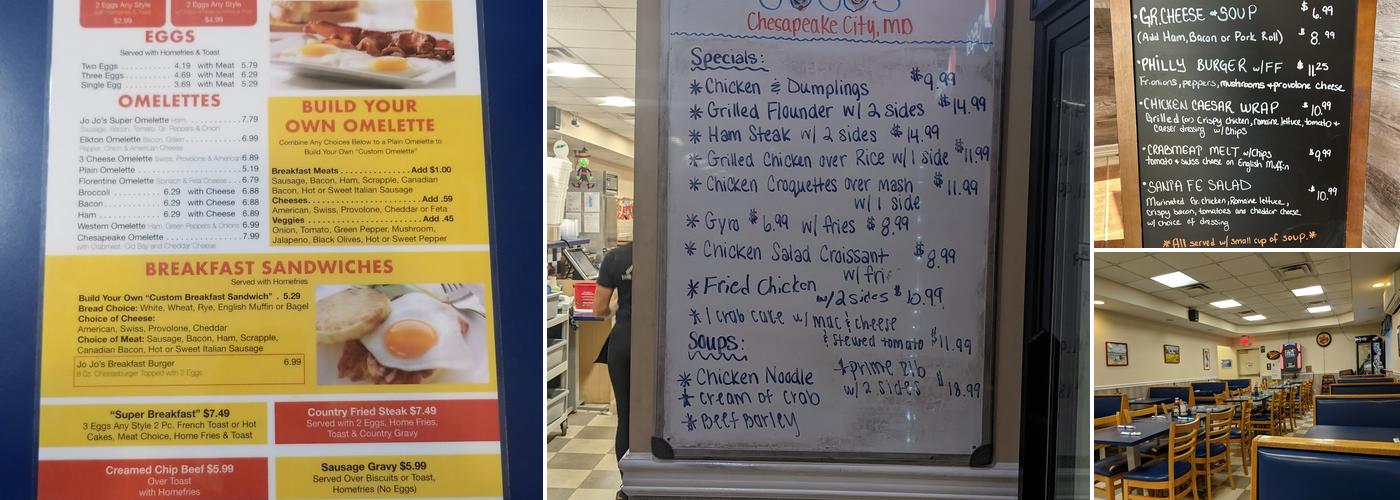 2 Eggs Any Style
$2.99
2 Eggs Any Style
$4.99
EGGS
Served with Homefries & Toast
Two Eggs . . . . . . . . . . 4.19 with Meat 5.79
Three Eggs . . . . . . . . . 4.69 with Meat 6.29
Single Egg . . . . . . . . . 3.69 with Meat 5.29
OMELETTES
Jo Jo's Super Omelette Ham, . . . . . . . 7.79
Sausage, Bacon, Tomato, Gr. Peppers & Onion
Elkton Omelette Bacon, Green . . . . . . 6.99
Pepper, Onion & American Cheese
3 Cheese Omelette Swiss, Provolone & American 6.89
Plain Omelette . . . . . . . . . . 5.19
Florentine Omelette Spinach & Feta Cheese . 6.79
Broccoli . . . . . . . 6.29 with Cheese 6.88
Bacon . . . . . . . . 6.29 with Cheese 6.88
Ham . . . . . . . . . 6.29 with Cheese 6.89
Western Omelette Ham, Green Peppers & Onions 6.99
Chesapeake Omelette . . . . . . . . 7.99
with Crabmeat, Old Bay and Cheddar Cheese
BUILD YOUR
OWN OMELETTE
Combine Any Choices Below to a Plain Omelette to
Build Your Own "Custom Omelette"
Breakfast Meats . . . . . . . . . . . . . Add $1.00
Sausage, Bacon, Ham, Scrapple, Canadian
Bacon, Hot or Sweet Italian Sausage
Cheeses. . . . . . . . . . . . . . . . . . . . Add .59
American, Swiss, Provolone, Cheddar or Feta
Veggies . . . . . . . . . . . . . . . . . . . . Add .45
Onion, Tomato, Green Pepper, Mushroom,
Jalapeno, Black Olives, Hot or Sweet Pepper
BREAKFAST SANDWICHES
Served with Homefries
Build Your Own "Custom Breakfast Sandwich" . 5.29
Bread Choice: White, Wheat, Rye, English Muffin or Bagel
Choice of Cheese:
American, Swiss, Provolone, Cheddar
Choice of Meat: Sausage, Bacon, Ham, Scrapple,
Canadian Bacon, Hot or Sweet Italian Sausage
Jo Jo's Breakfast Burger 6.99
8 Oz. Cheeseburger Topped with 2 Eggs
"Super Breakfast" $7.49
3 Eggs Any Style 2 Pc. French Toast or Hot
Cakes, Meat Choice, Home Fries & Toast
Country Fried Steak $7.49
Served with 2 Eggs, Home Fries,
Toast & Country Gravy
Creamed Chip Beef $5.99
Over Toast
with Homefries
Sausage Gravy $5.99
Served Over Biscuits or Toast,
Homefries (No Eggs)
Chesapeake City, MD
Specials:
* Chicken & Dumplings $9.99
* Grilled Flounder w/ 2 sides $14.99
* Ham Steak w/ 2 sides $14.99
* Grilled Chicken over Rice w/ 1 side $11.99
* Chicken Croquettes over mash $11.99
w/ 1 side
* Gyro $6.99 w/ fries $8.99
* Chicken Salad Croissant $8.99
w/ fri
* Fried Chicken
w/ 2 sides $10.99
* 1 crab cake w/ mac & cheese
& stewed tomato $11.99
Soups:
* prime rib
w/ 2 sides $18.99
* Chicken Noodle
* cream of crab
* Beef Barley
• GR.CHEESE & SOUP $6.99
(Add Ham, Bacon or Pork Roll) $8.99
• PHILLY BURGER w/FF $11.25
Fr.onions, peppers, mushrooms & provolone cheese
• CHICKEN CAESAR WRAP $10.99
Grilled (or) Crispy chicken, romaine lettuce, tomato +
Caesar dressing w/Chips
• CRABMEAT MELT w/chips $9.99
tomato & swiss cheese on English Muffin
• SANTA FE SALAD $10.99
Marinated Gr. chicken, Romaine lettuce,
crispy bacon, tomatoes and cheddar cheese
w/ choice of dressing
*All served w/ small cup of soup.*